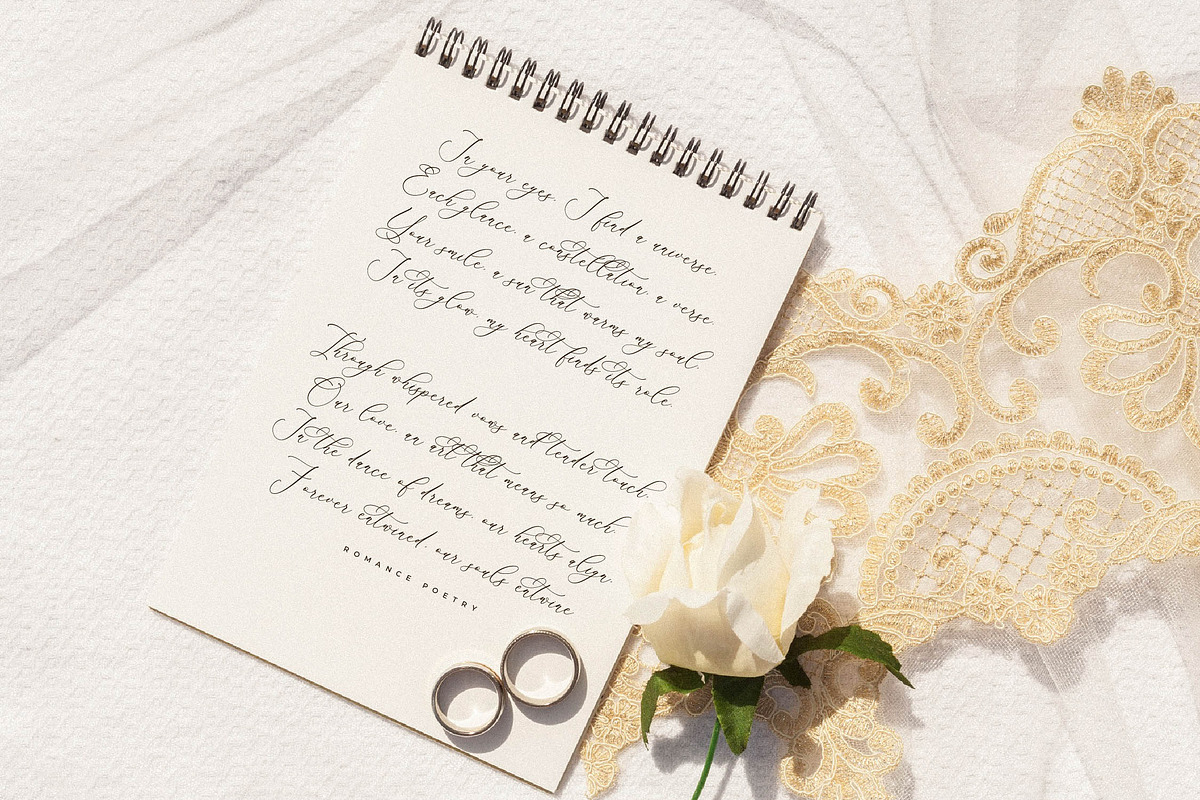 In your eyes, I find a universe,
Each glance, a constellation, a verse.
Your smile, a sun that warms my soul,
In its glow, my heart finds its role.
Through whispered vows and tender touch,
Our love, an art that means so much.
In the dance of dreams, our hearts align,
Forever entwined, our souls entwine
ROMANCE POETRY